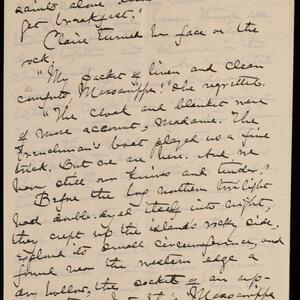 saints alone
get breakfast."
Claire turned her face on the
rock.
"My packet of linen and clean
comforts, Massawippa!" she regretted.
"The cloak and blanket were
of more account, madame. The
Frenchman's boat played us a fine
trick. But we are here. And we
have still our knives and tinder."
Before the long northern twilight
had double-dyed itself into night,
they crept up the island's rocky side,
explored its small circumference, and
found near the western edge a
dry hollow, the socket of an up-
Massawippa